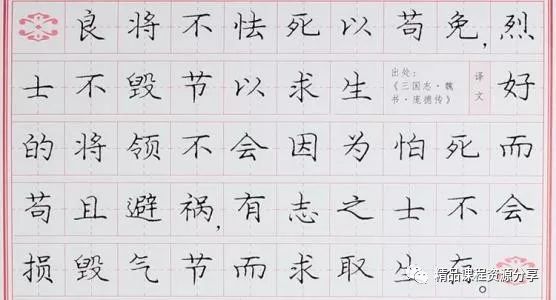 良将不怯死以苟免,烈
士不毁节以求生 出处:《三国志·魏书·庞德传》 译文 好
的将领不会因为怕死而
苟且避祸,有志之士不会
损毁气节而求取生存。
精品课程资源分享